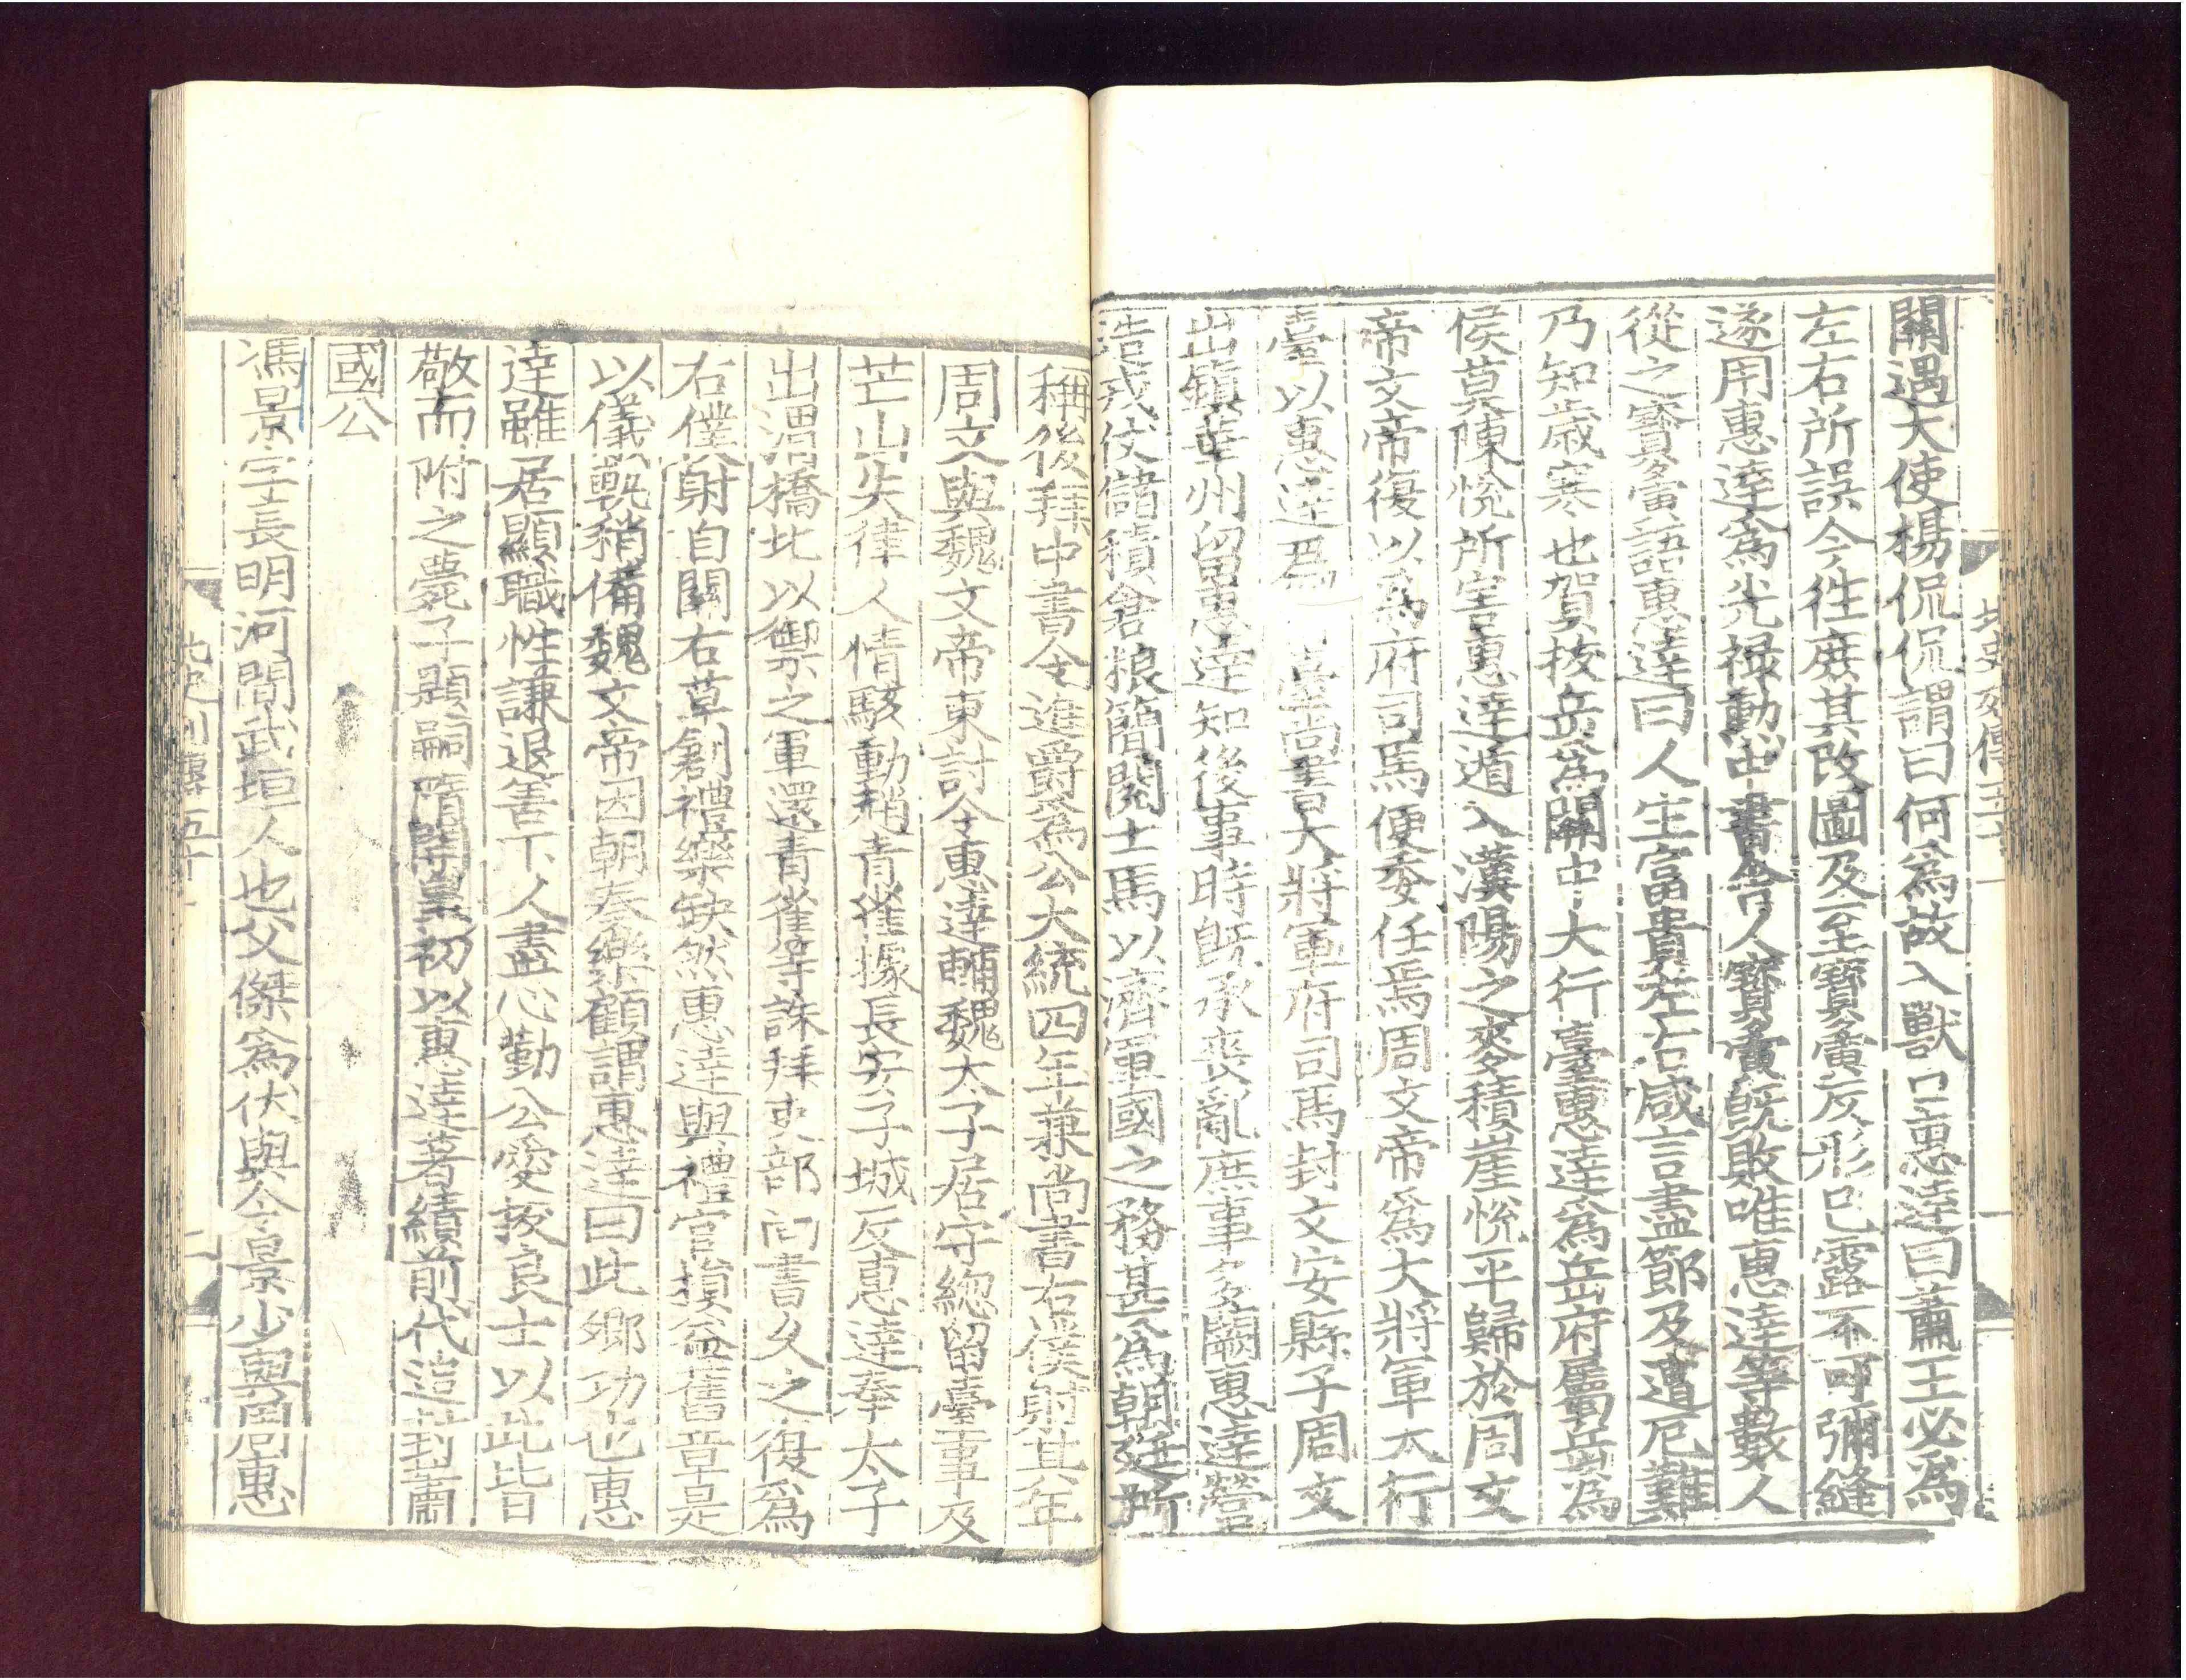 關遇大使楊侃侃謂曰何爲故入獸口惠逹曰蕭王必爲
左右所誤今徃庶其改圖及至寶夤反形已露不可彌縫
遂用惠逹爲光禄勲中書舍人寶夤既敗唯惠逹等數人
從之寶夤語惠逹曰人生富貴左右咸言盡節及遭厄難
乃知歳寒也賀抜岳爲關中大行臺惠逹爲岳府屬岳爲
侯莫陳悅所害惠逹遁入漢陽之麥積崖悅平歸於周文
帝文帝復以爲府司馬便委任焉周文帝爲大將軍大行
臺以惠逹爲臺尚書大將軍府司馬封文安縣子周文
出鎮華州留惠逹知後事時旣承喪亂庶事多闕惠逹營
造戎仗儲積倉粮簡閱士馬以濟軍國之務甚爲朝廷所
稱後拜中書令進爵爲公大統四年兼尚書右僕射其年
周文與魏文帝東討令惠逹輔魏太子居守總留臺事及
芒山失律人情駭動趙青雀據長安子城反惠逹奉太子
出渭橋北以禦之軍還青雀等誅拜吏部尚書久之復爲
右僕射自關右草創禮樂缺然惠逹與禮官損益舊章是
以儀軌稍備魏文帝因朝奏樂顧謂惠逹曰此卿功也惠
逹雖居顯職性謙退善下人盡心勤公愛抜良士以此皆
敬而附之薨子題嗣隋開皇初以惠逹著績前代追封蕭
國公
馮景字長明河間武垣人也父傑爲伏與令景少與周惠
北史列傳五十一
北史列傳五十一
二